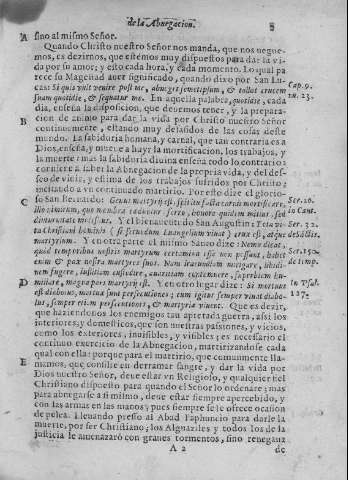 de la Abnegacion. 8
A sino al mismo Señor.
Quando Christo nuestro Señor nos manda, que nos neguemos, es dezirnos, que estemos muy dispuestos para dar la vida por su amor; y esto cada hora, y cada momento. Lo qual parece su Magestad auer significado, quando dixo por San Lucas: Si quis vult venire post me, abneget semetipsum, & tollat crucem
suam quotidie, & sequatur me. En aquella palabra, quotidie, cada
dia, enseña la disposicion, que deuemos tener, y la preparacion
B de animo para dar la vida por Christo nuestro Señor
continuamente, estando muy desasidos de las cosas deste
mundo. La sabiduria humana, y carnal, que tan contraria es a
Dios, enseña, y mueue a huyr la mortificacion, los trabajos, y
la muerte: mas la sabiduria diuina enseña todo lo contrario:
conuiene a saber la Abnegacion de la propia vida, y del desseo
de viuir, y estima de los trabajos sufridos por Christo;
incitando a vn continuado martirio. Por esto dize el glorioso
C San Bernardo: Genus martyrij est, spiritu facta carnis mortificare,
illo nimirum, quo membra caeduntur ferro, horrore quidem mitius, sed
diuturnitate molestius. Y el bienauenturado San Augustin: Tota vita
Christiani hominis (si secundum Euangelium viuat) crux est, atque
martyrium. Y en otra parte el mismo Santo dize: Nemo dicat,
quod temporibus nostris martyrum certamina esse non possunt, habet
enim & pax nostra martyres suos. Nam iracundiam mitigare, libidinem
fugere, iustitiam custodire, auaritiam contemnere, superbiam humiliare,
D magna pars martyrij est. Y en otro lugar dize: Si mortuus
est diabolus, mortuae sunt persecutiones; cum igitur semper viuat diabolus,
semper etiam persecutiones, & martyria viuent. Que es dezir,
que haziendonos los enemigos tan apretada guerra, assi los
interiores, y domesticos, que son nuestras passiones, y vicios,
como los exteriores, inuisibles, y visibles; es necessario el
continuo exercicio de la Abnegacion, martirizandose cada
qual con ella: porque para el martirio, que comunmente llamamos,
E que consiste en derramar sangre, y dar la vida por
Dios nuestro Señor, deue estar vn Religioso, y qualquier fiel
Christiano dispuesto para quando el Señor lo ordenare; mas
para abnegarse a si mismo, deue estar siempre apercebido, y
con las armas en las manos; pues siempre se le ofrece ocasion
de pelea. Lleuando preso al Abad Paphuncio para darle la
muerte, por ser Christiano; los Alguaziles y todos los de la
justicia le amenazarō con grandes tormentos, sino renegaua
A 2 de
Cap. 9.
nu. 23.
Ser. 30.
in Cant.
Ser. 32.
de Sāctis.
Ser. 250.
de Temp.
In Psal.
127.